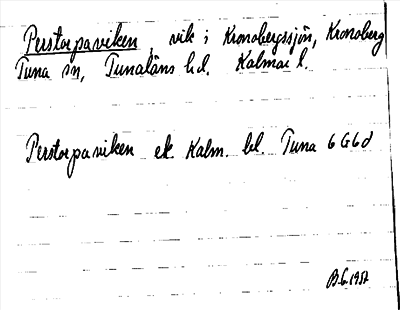 Perstorpaviken, vik i Kronobergssjön, Kronoberg
Tuna sn, Tunaläns hd. Kalmar l.
Perstorpaviken ek. Kalm. bl. Tuna 6 G 6 d
B.G. 1957